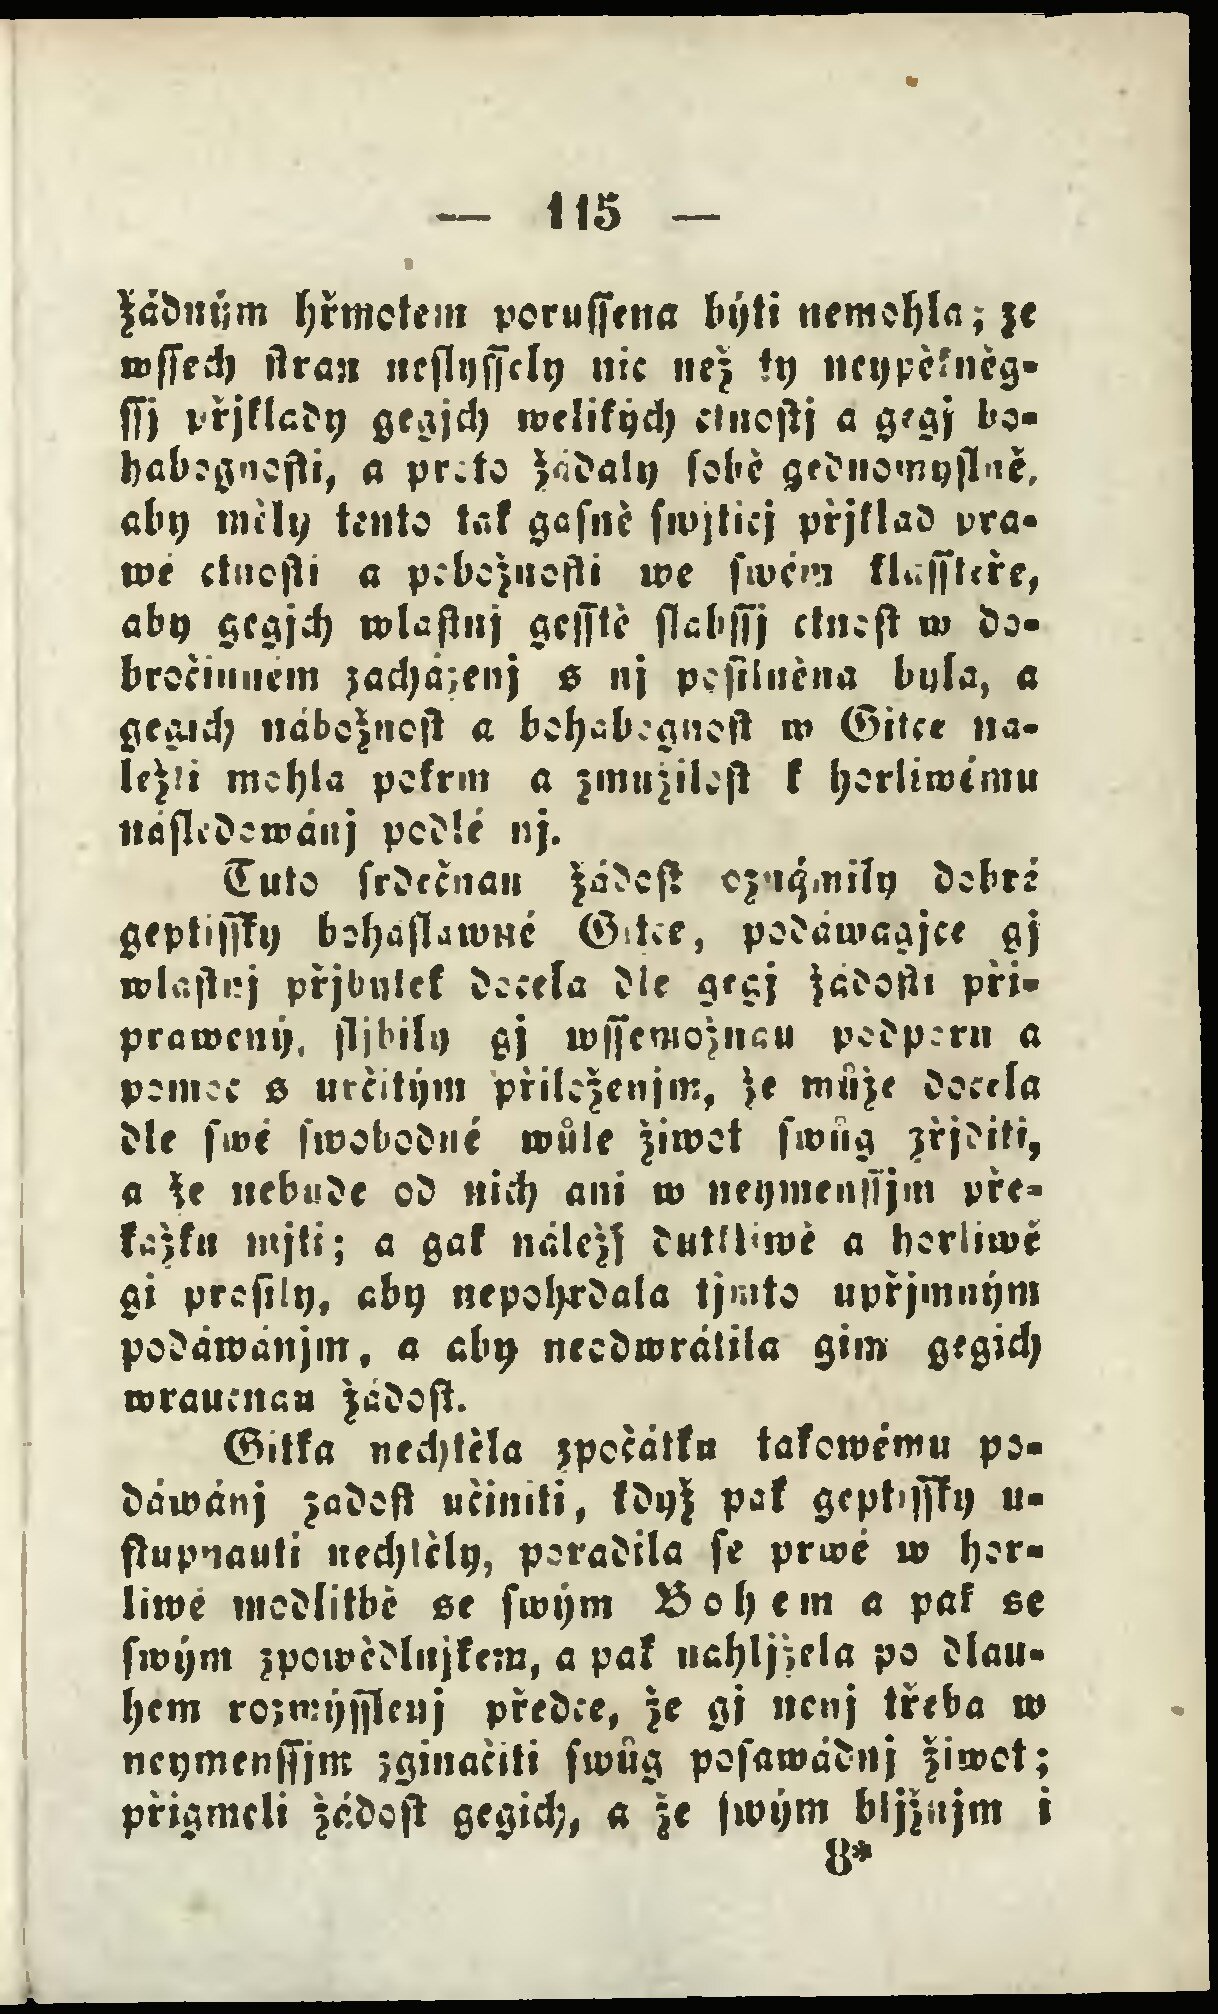 — 115 —
žádným hřmotem porussena býti nemohla; ze
wssech stran neslyssely nic než ty neypěkněg-
ssj přjklady gegjch welikých ctnostj a gegj bo-
habognosti, a proto žádaly sobě gednomyslně,
aby měly tento tak gasně swjticj přjklad pra-
wé ctnosti a pobožnosti we swém klássteře,
aby gegjch wlastnj gesstě slabssj ctnost w do-
bročinném zacházenj s nj posilněna byla, a
gegich nábožnost a bohabognost w Gitce na-
ležti mohla pokrm a zmužilost k horliwému
následowánj podlé nj.
Tuto srdečnau žádost oznámily dobré
geptissky bohaslawné Gitce, podáwagjce gj
wlastnj přjbytek docela dle gegj žádosti při-
prawený, sljbily gj wssemožnau podporu a
pomoc s určitým přiloženjm, že může docela
dle swé swobodné wůle žiwot swůg zřjditi,
a že nebude od nich ani w neymenssjm pře-
kažku mjti; a gak náležj dutkliwě a horliwě
gi prosily, aby nepohrdala tjmto upřjmným
podáwánjm, a aby neodwrátila gim gegich
wraucnau žádost.
Gitka nechtěla zpočátku takowému po-
dáwánj zadost učiniti, když pak geptissky u-
stupnauti nechtěly, poradila se prwé w hor-
liwé modlitbě se swým Bohem a pak se
swým zpowědlnjkem, a pak nahljžela po dlau-
hem rozmýsslenj předce, že gi nenj třeba w
neymenssjm zginačiti swůg posawádnj žiwot;
přigmeli žádost gegich, a že swým bljžnjm i
8*